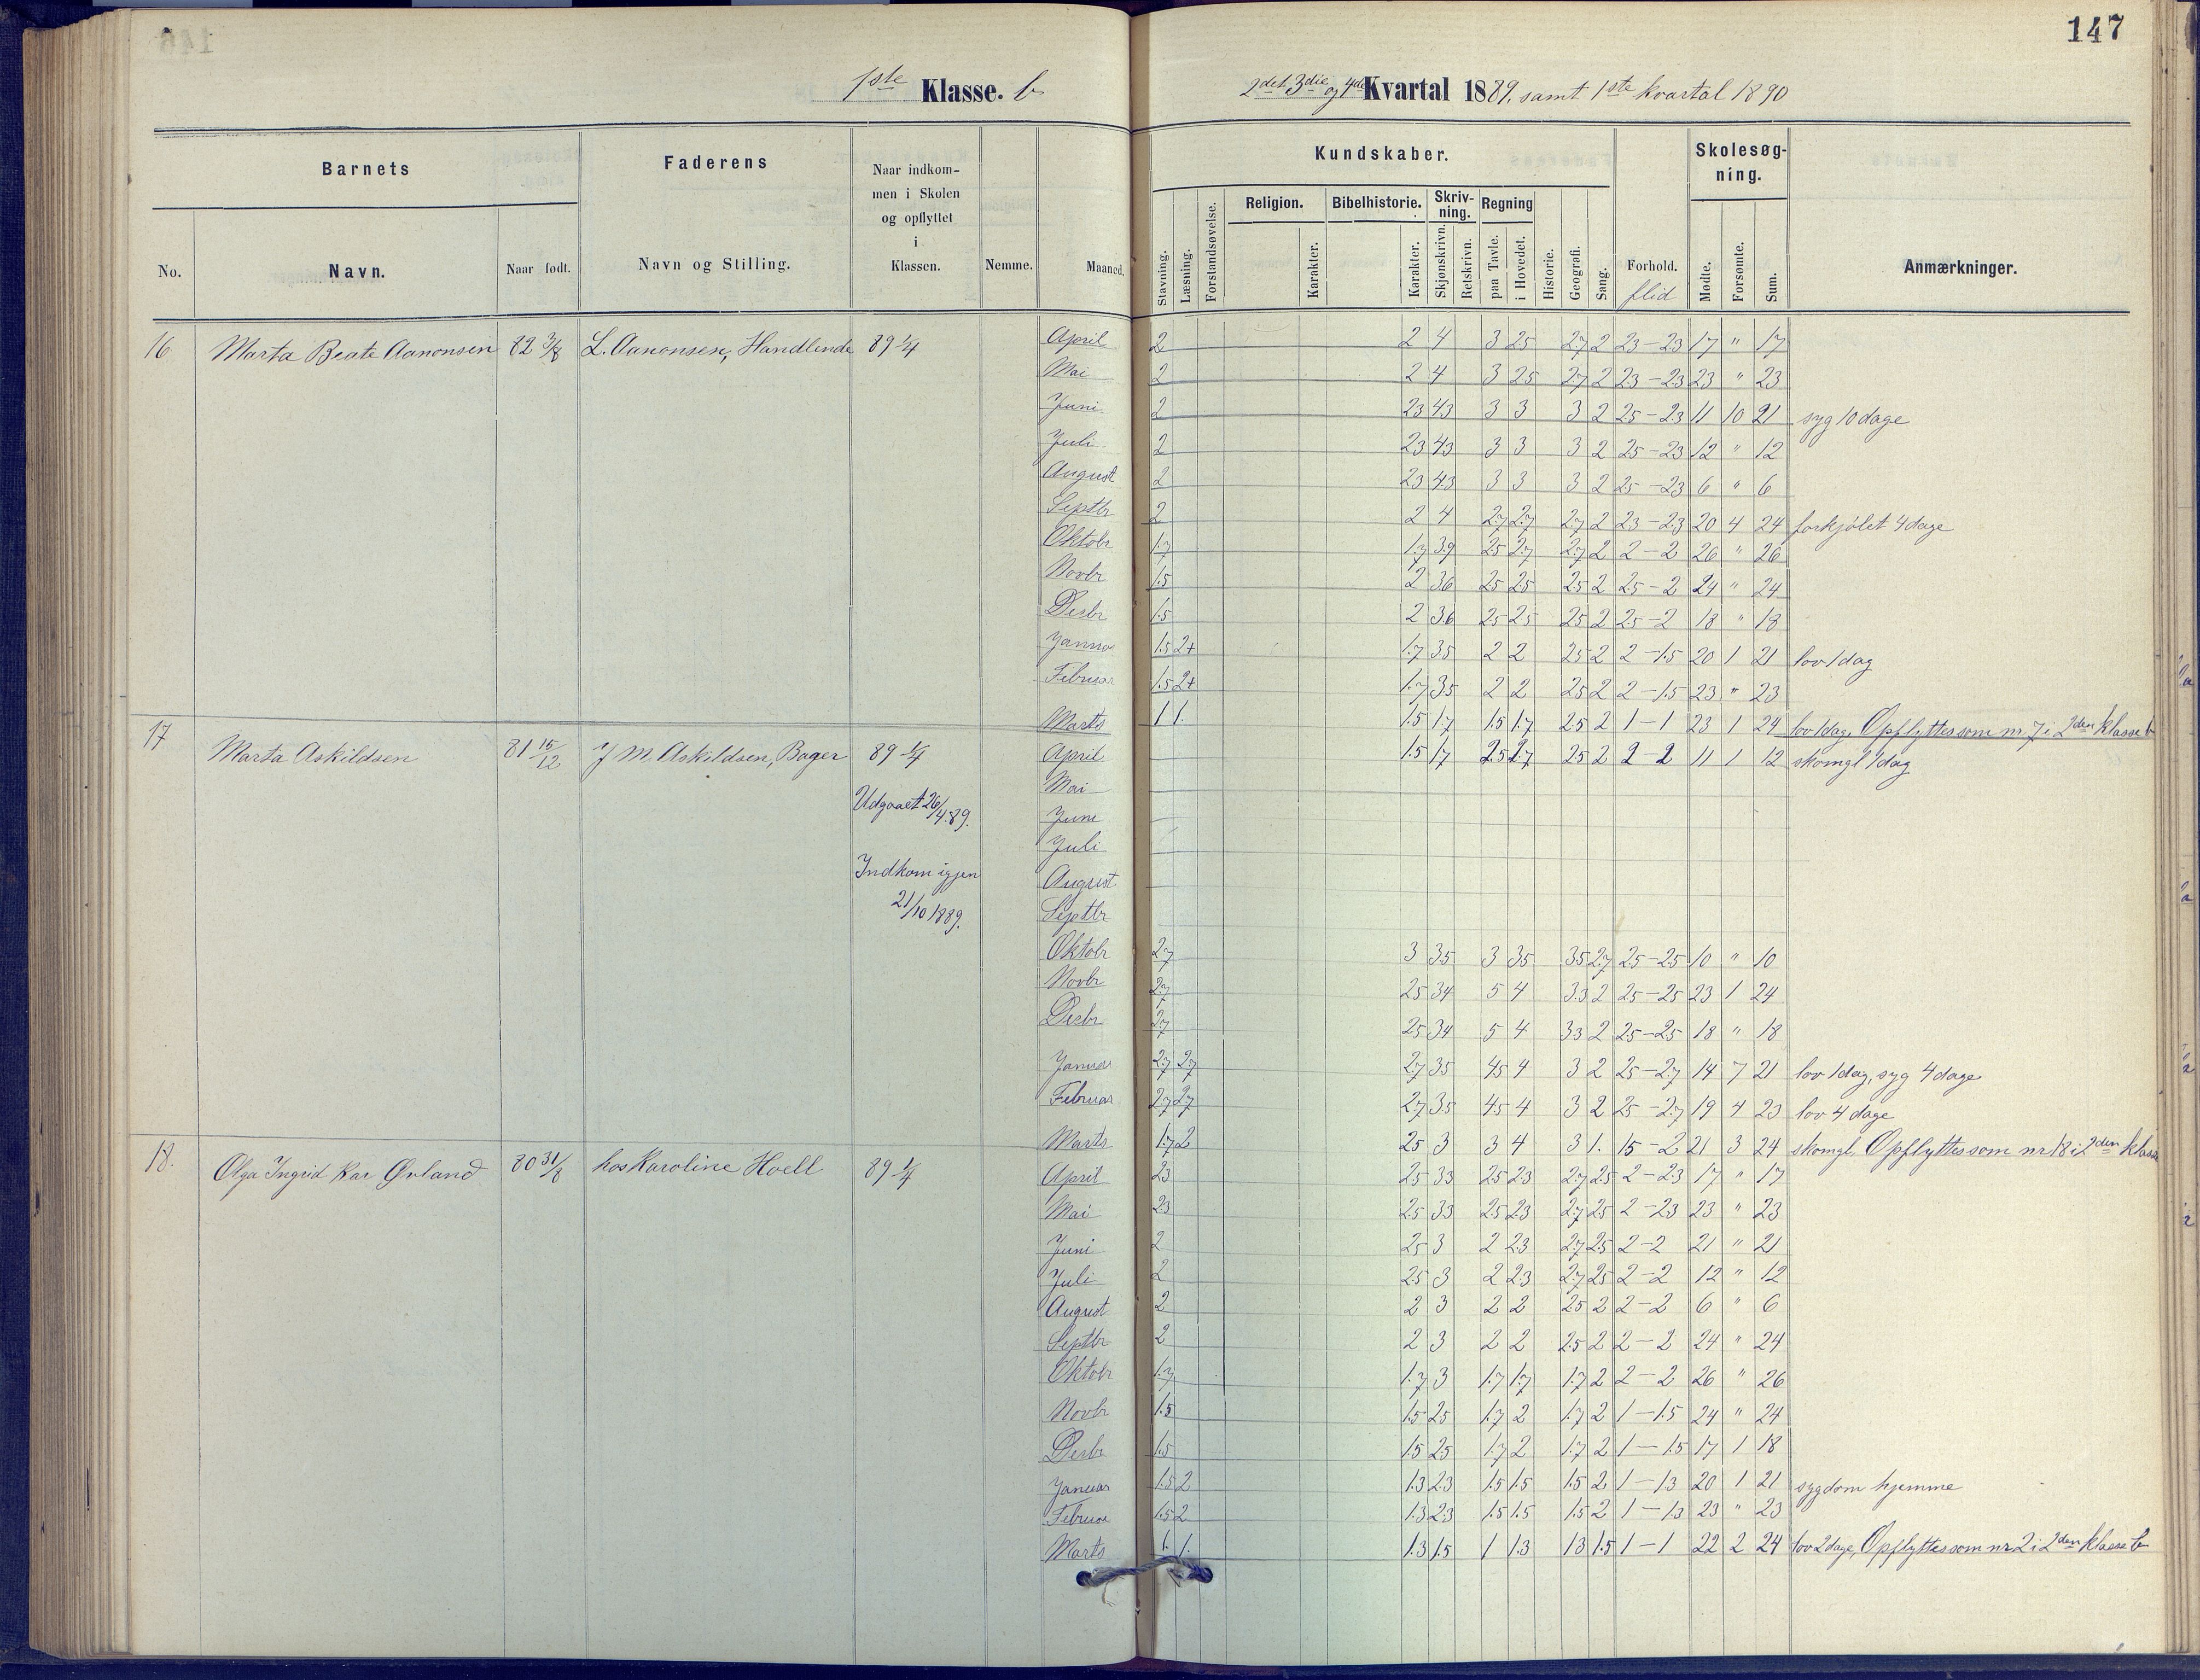 147
1ste Klasse. b
2det 3die og 4de Kvartal 1889. samt 1ste kvartal 1890
Barnets
Faderens
Naar indkom-
men i Skolen
og opflyttet
i
Klassen.
Kundskaber.
Skolesøg-
ning.
Religion. Bibelhistorie. Skriv-
ning. Regning
No. Navn. Naar født. Navn og Stilling. Nemme. Maaned.
Stavning. Læsning. Forstandsøvelse. Karakter. Karakter. Skjønskrivn. Retskrivn. paa Tavle. i Hovedet. Historie. Geografi. Sang. Forhold. Mødte. Forsømte. Sum. Anmærkninger.
flid
16 Marta Beate Aanonsen 82 3/8 L. Aanonsen, Handlende 89 1/4 April 2 2 4 3 25 27 2 23-23 17 " 17
Mai 2 2 4 3 25 27 2 23-23 23 " 23
Juni 2 23 43 3 3 3 2 25-23 11 10 21 syg 10 dage
Juli 2 23 43 3 3 3 2 25-23 12 " 12
August 2 23 43 3 3 3 2 25-23 6 " 6
Septbr 2 2 4 27 27 27 2 23-23 20 4 24 forkjølet 4 dage
Oktobr 1.7 1.7 39 25 27 27 2 2-2 26 " 26
Novbr 1.5 2 36 25 25 25 2 25-2 24 " 24
Desbr 1.5 2 36 25 25 25 2 25-2 18 " 18
Januar 1.5 2+ 1.7 35 2 2 25 2 2-1.5 20 1 21 lov 1 dag
Februar 1.5 2+ 1.7 35 2 2 25 2 2-1.5 23 " 23
Marts 1 1. 1.5 1.7 15 1.7 25 2 1-1 23 1 24 lov 1 dag, Opflyttes som nr. 7 i 2den klasse b
17 Marta Askildsen 81 15/12 J M. Askildsen, Bager 89 1/4 April 1.5 17 2.5 2.7 25 2 2-2 11 1 12 skomgl 1 dag
Mai
Udgaaet 26/4.89.
June
Juli
Indkom igjen
August
21/10 1889.
Septbr
Oktobr 2.7 3 3.5 3 35 35 2.7 25-25 10 " 10
Novbr 2.7 25 34 5 4 3.3 2 25-25 23 1 24
Desbr 27 25 34 5 4 33 2 25-25 18 " 18
Januar 2.7 27 27 35 45 4 3 2 25-27 14 7 21 lov 1 dag, syg 4 dage
Februar 2.7 27 27 35 45 4 3 2 25-27 19 4 23 lov 4 dage
Marts 1.7 2 25 3 3 4 3 1. 15-2 21 3 24 skomgl. Opflyttes som nr 18 i 2den klasse
18. Olga Ingrid Kar Ørland 80 31/8 hos Karoline Hoell 89 1/4 April 23 25 33 25 23 27 25 2-23 17 " 17
Mai 23 25 33 25 23 27 25 2-23 23 " 23
Juni 2 25 3 2 23 27 25 2-2 21 " 21
Juli 2 25 3 2 23 27 25 2-2 12 " 12
August 2 2 3 2 2 25 2 2-2 6 " 6
Septbr 2 2 3 2 2 25 2 2-2 24 " 24
Oktobr 1.7 1.7 3 1.7 1.7 1.7 2 2-2 26 " 26
Novbr 1.5 1.5 25 1.7 2 1.7 2 1-1.5 24 " 24
Desbr 1.5 15 25 1.7 2 1.7 2 1-1.5 17 1 18
Januar 1.5 2 1.3 23 15 1.5 1.5 2 1-13 20 1 21 sygdom hjemme
Februar 1.5 2 1.3 23 15 1.5 1.5 2 1-1.3 23 " 23
Marts 1. 1. 1.3 1.5 1 1.3 13 1.5 1-1 22 2 24 lov 2 dage, Opflyttes som nr 2 i 2den klasse b